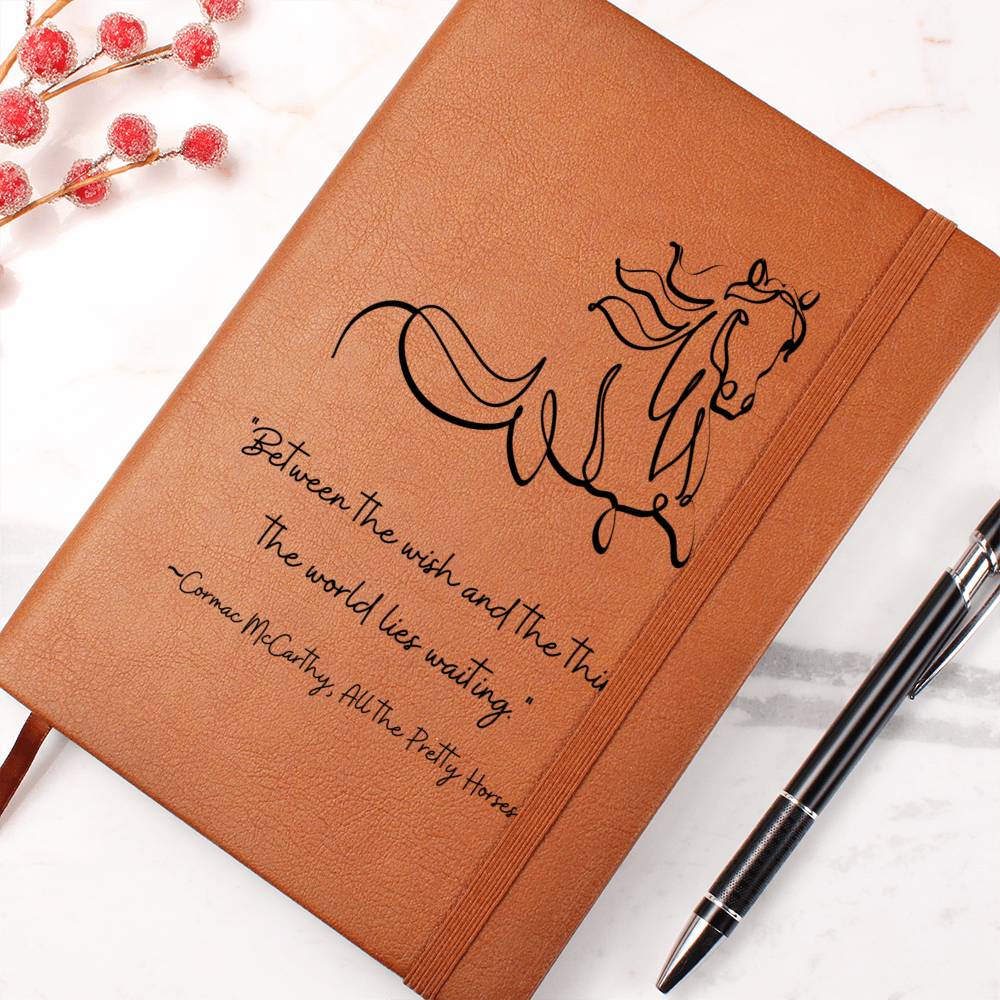 "Between the wish and the thi
the world lies waiting."
~Cormac McCarthy, All the Pretty Horses